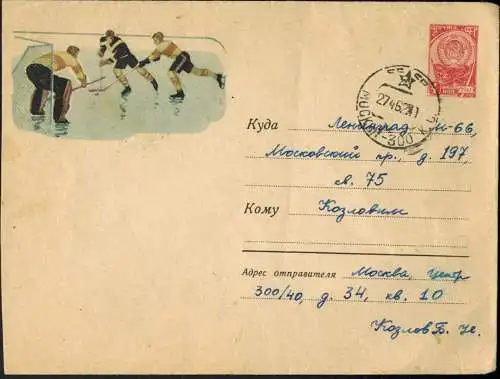 Куда Ленинград М-66,
Московский пр., д. 197,
кв. 75
Кому Козловым
Адрес отправителя Москва, Центр
300/40, д. 34, кв. 10
Козлов Б. Н.